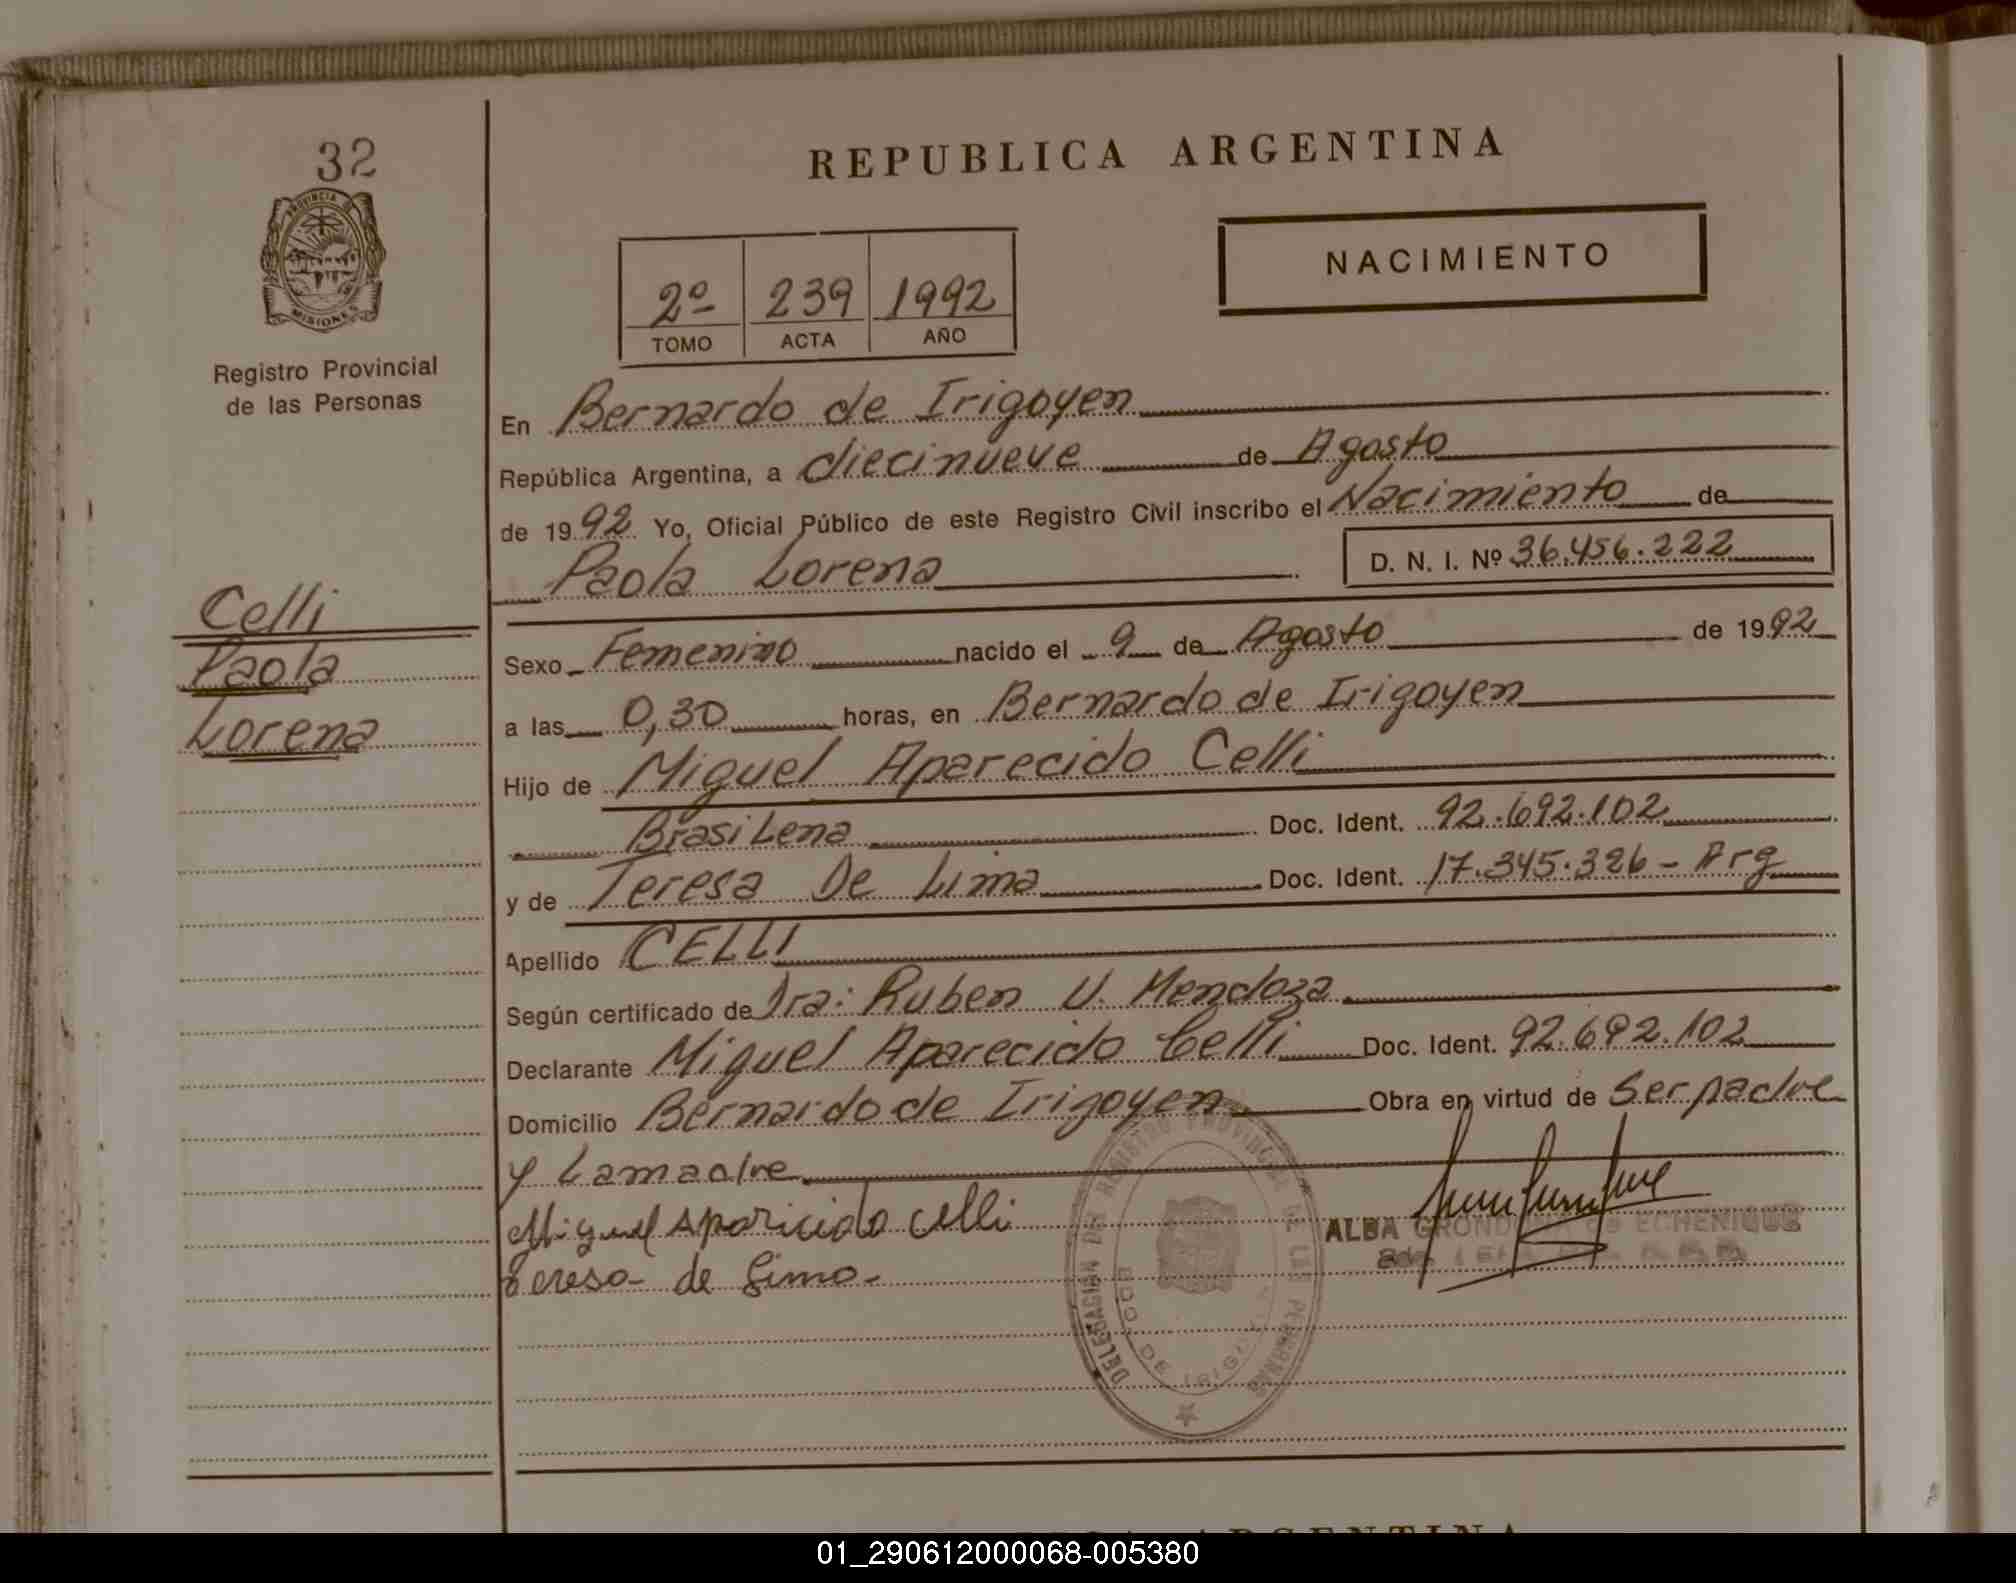 32
PROVINCIA DE
MISIONES
Registro Provincial
de las Personas
Celli
Paola
Lorena
REPUBLICA ARGENTINA
NACIMIENTO
2º 239 1992
TOMO ACTA AÑO
En Bernardo de Irigoyen
República Argentina, a diecinueve de Agosto
de 1992 Yo, Oficial Público de este Registro Civil inscribo el Nacimiento de
Paola Lorena D. N. I. Nº 36.456.222
Sexo Femenino nacido el 9 de Agosto de 1992
a las 0,30 horas, en Bernardo de Irigoyen
Hijo de Miguel Aparecido Celli
BrasiLena Doc. Ident. 92.692.102
y de Teresa De Lima Doc. Ident. 17.345.326 - Arg
Apellido CELLI
Según certificado de Dra: Ruben V. Mendoza
Declarante Miguel Aparecido Celli Doc. Ident. 92.692.102
Domicilio Bernardo de Irigoyen Obra en virtud de Ser padre
y La madre
Miguel Aparicido Celli
Teresa de Lima
DELEGACION DEL REGISTRO PROVINCIAL DE LAS PERSONAS
BDO. DE IRIGOYEN
ALBA GRONDONA de ECHENIQUE
ARGENTINA
01_290612000068-005380